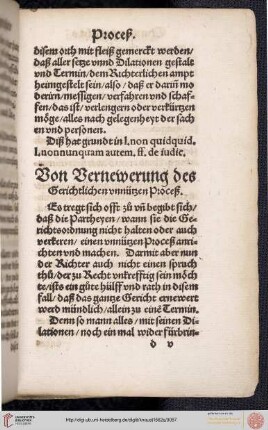 Proceß.
disem orth mit fleiß gemerckt werden/
daß aller setze vnnd Dilationen gestalt
vnd Termin/dem Richterlichen ampt
heimgestelt sein/also/daß er darin̄ mo
deriṙn/messigen/verfahren vnd schaf-
fen/das ist/verlengern oder verkürtzen
möge/alles nach gelegenheyt der sach
en vnd personen.
Diß hat grundt in l. non quidquid.
l. nonnunquam autem. ff. de iudic.
Von Vernewerung des
Gerichtlichen vnnützen Proceß.
Es tregt sich offt zů vn̄ begibt sich/
daß die Partheyen/wann sie die Ge-
richtsordnung nicht halten oder auch
verkeren/einen vnnützen Proceß anri-
chten vnd machen. Darmit aber nun
der Richter auch nicht einen spruch
thů/der zu Recht vnkrefftig sein möch
te/ists ein gůte hülff vnd rath in disem
fall/daß das gantze Gericht ernewert
werd mündlich/allein zu einē Termin.
Denn so mann alles/mit seinen Di-
lationen/noch ein mal wider fürbrin-
d v
http://digi.ub.uni-heidelberg.de/diglit/knaust1582a/0097